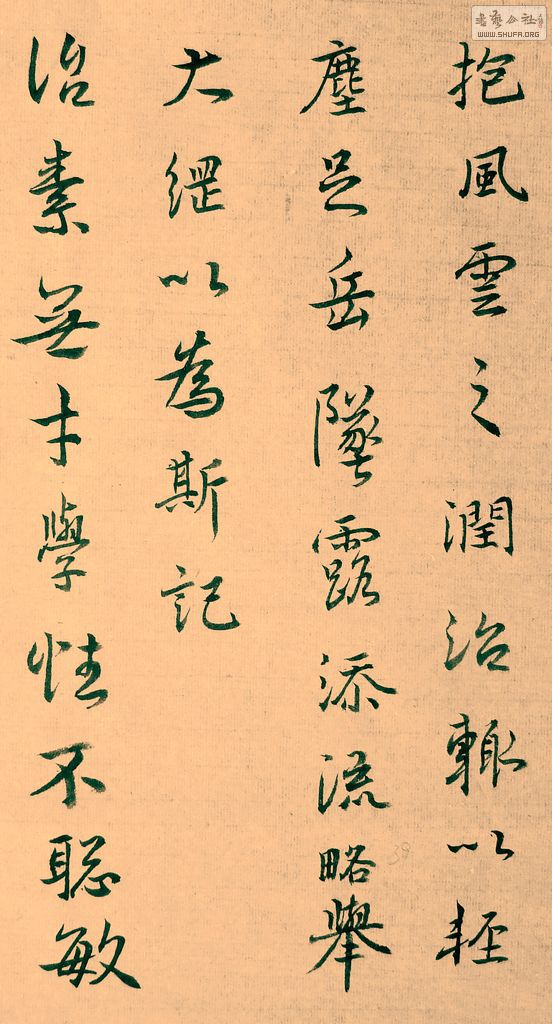 抱風雲之潤治輒以輕
塵足岳墜露添流略舉
大綱以為斯記
治素無才學性不聰敏
39
書藝公社
WWW.SHUFA.ORG